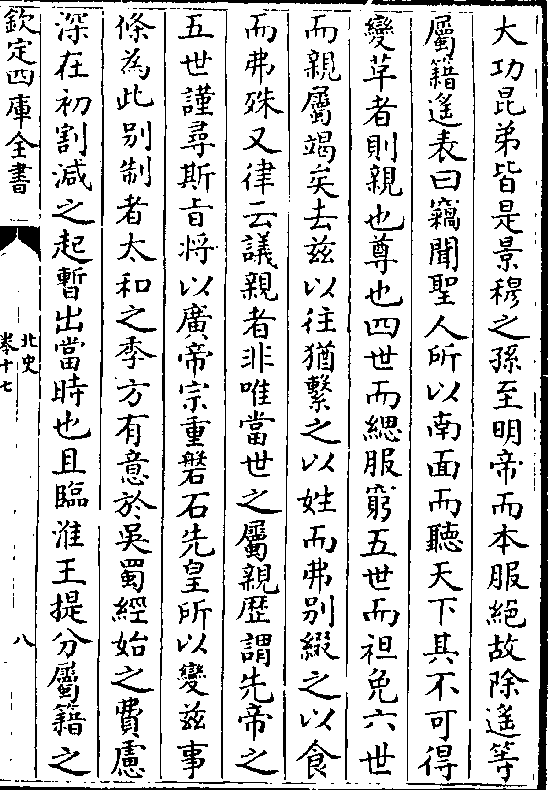 大功昆弟皆是景穆之孫至明帝而本服絕故除遙等
屬籍遙表曰竊聞聖人所以南面而聽天下其不可得
變革者則親也尊也四世而緦服窮五世而袒免六世
而親屬竭矣去兹以往猶繫之以姓而弗别綴之以食
而弗殊又律云議親者非唯當世之屬親歴謂先帝之
五世謹尋斯旨将以廣帝宗重磐石先皇所以變兹事
條為此别制者太和之季方有意於吳蜀經始之費慮
深在初割減之起暫出當時也且臨淮王提分屬籍之
欽定四庫全書
北史
卷十七
八